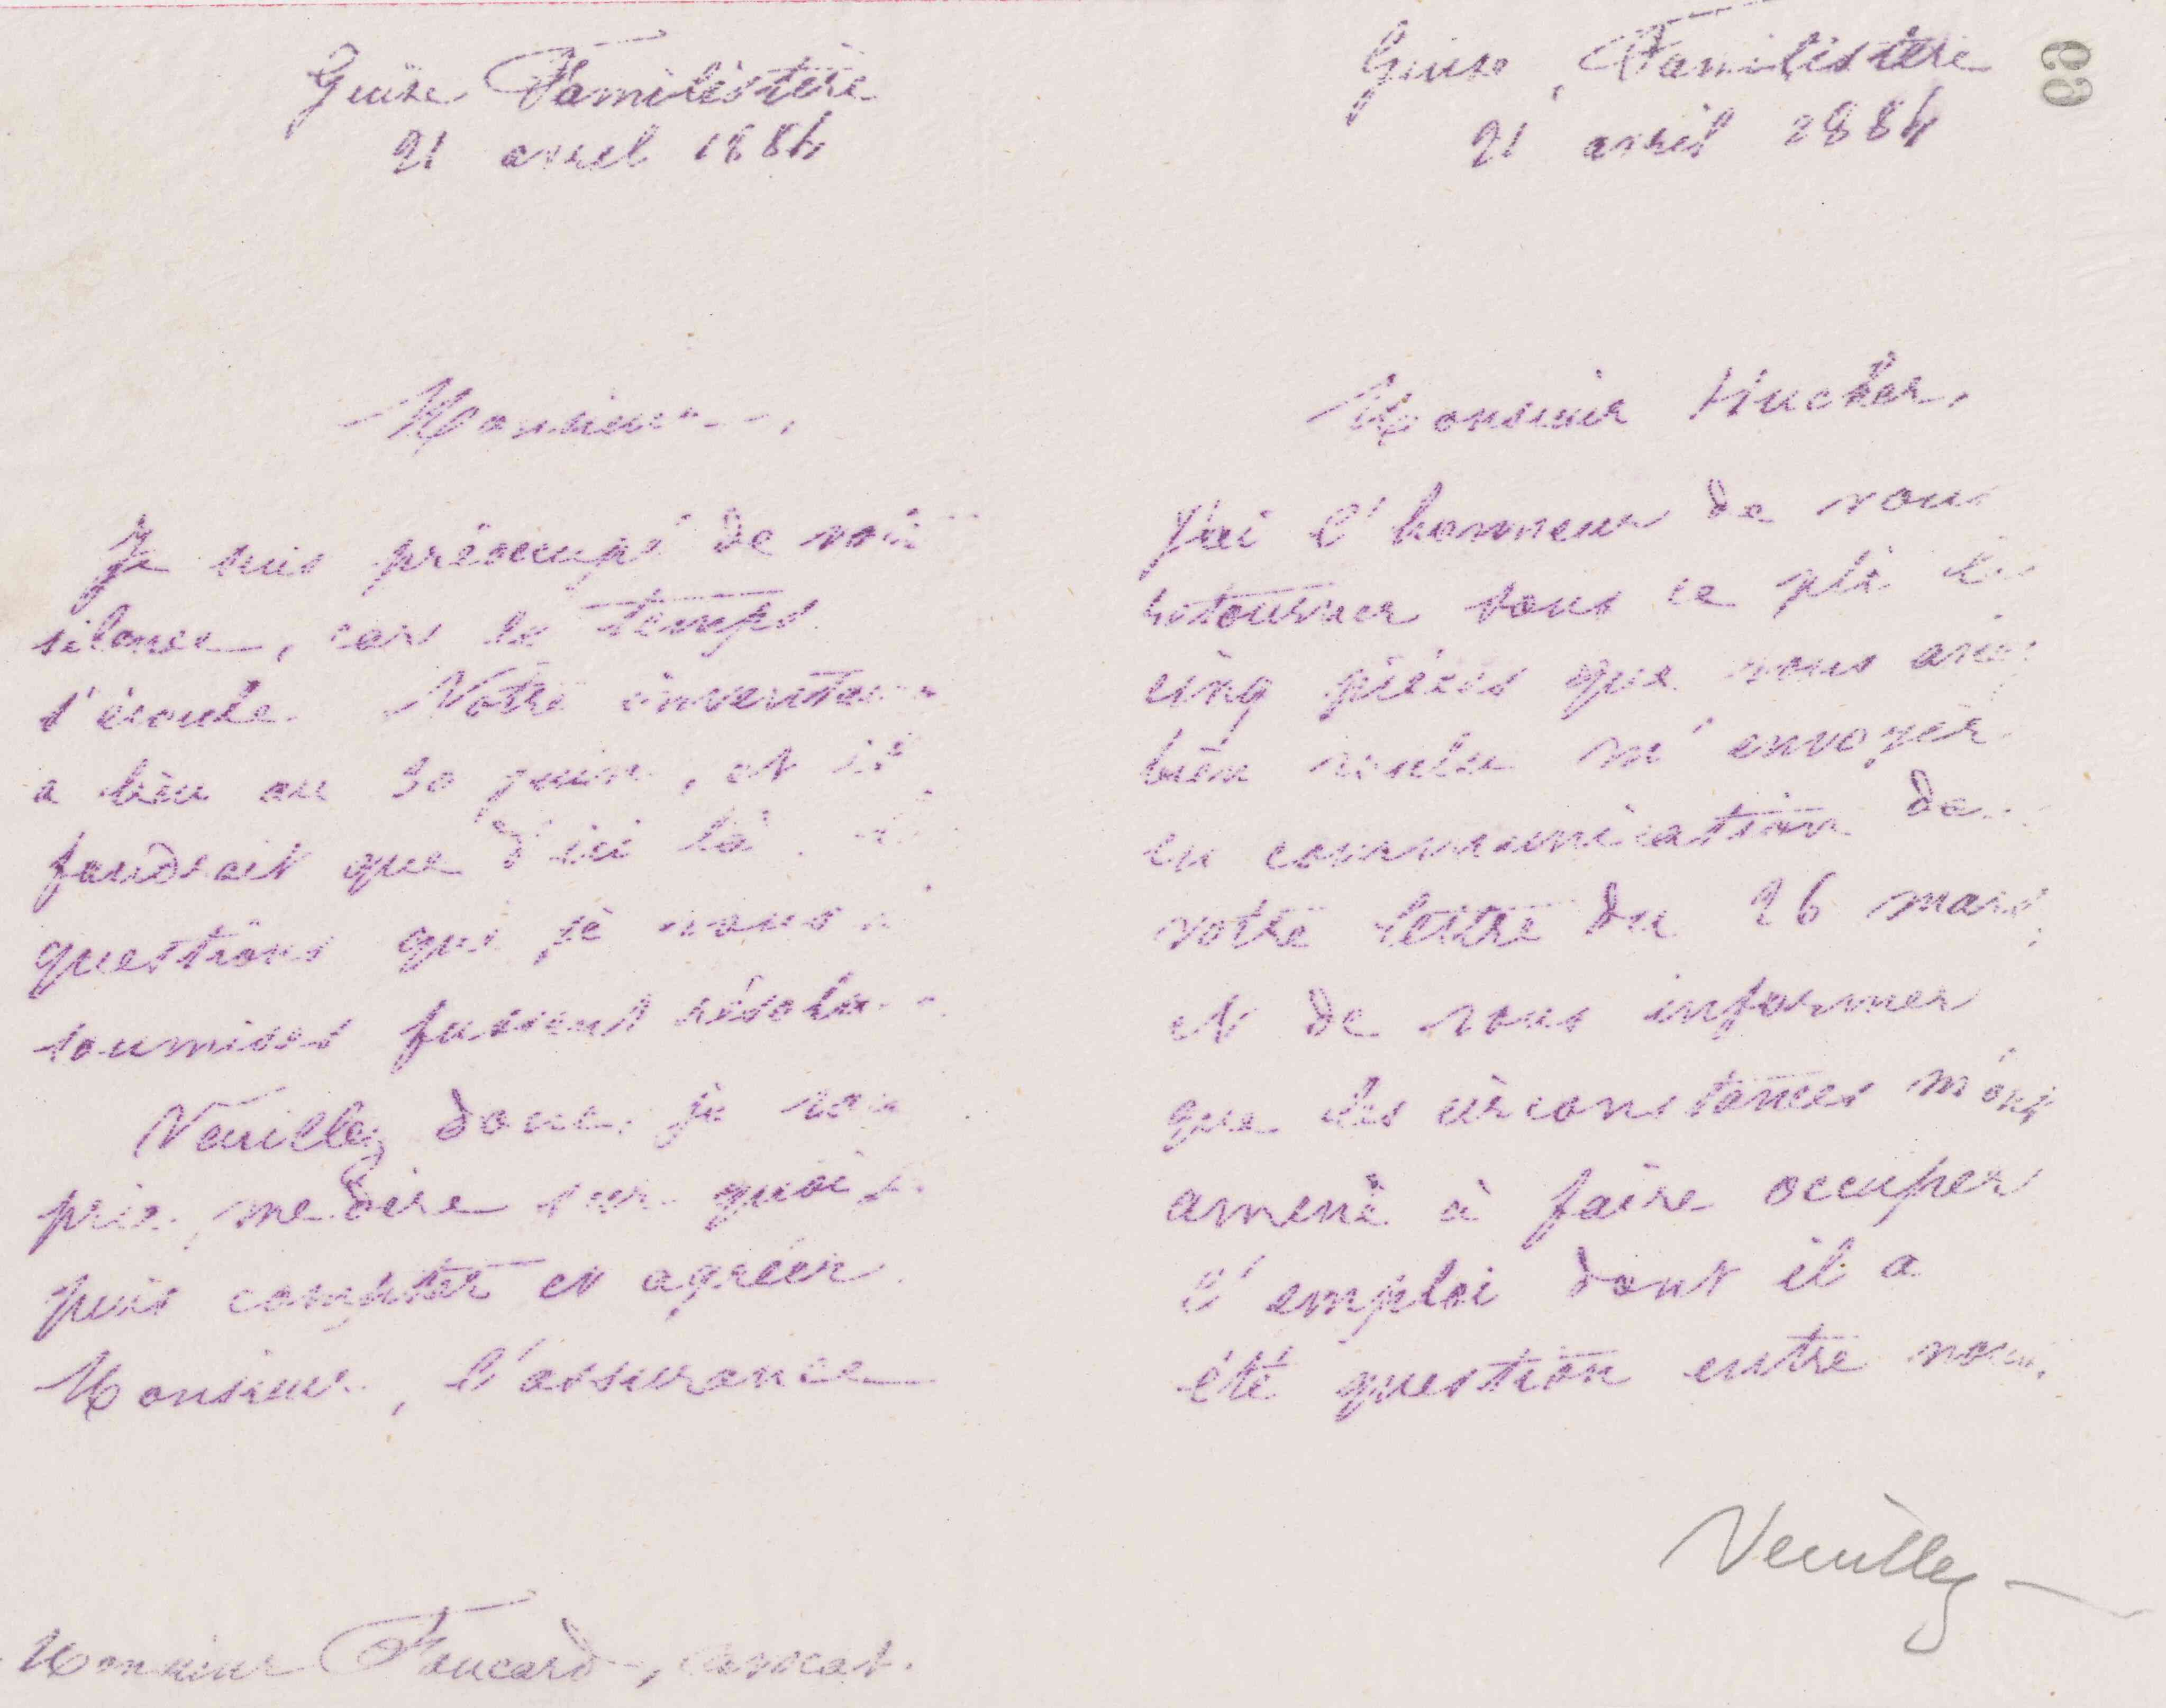 Guise Familistère
21 avril 1884
Monsieur,
Je suis préoccupé de votre
silence, car le temps
s'écoule. Notre inventaire
a lieu au 30 juin, et il
faudrait que d'ici là
questions que je vous
soumises fussent résolues
Veuillez donc, je vous
prie, me dire sur quoi je
puis compter et agréer
Monsieur, l'assurance
Monsieur Foucard, avocat.
Guise, Familistère
21 avril 1884
69
Monsieur Hucher,
J'ai l'honneur de vous
retourner sous ce pli les
cinq pièces que vous avez
bien voulu m'envoyer
en communication de
votre lettre du 26 mars
et de vous informer
que des circonstances m'ont
amené à faire occuper
l'emploi dont il a
été question entre nous.
Veuillez